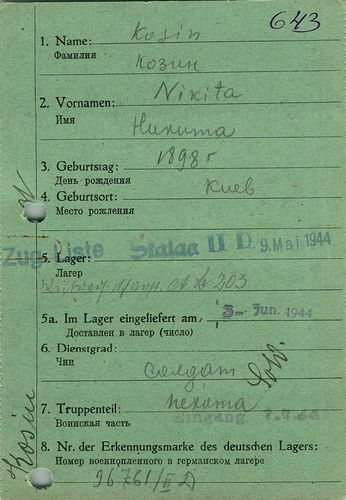 643
1. Name: Kosin
Фамилия Козин
2. Vornamen: Nikita
Имя Никита
3. Geburtstag: 1898 г
День рождения
4. Geburtsort: Киев
Место рожления
Zug. Liste Stalag II D 9. Mai. 1944
5. Lager:
Лагер 203
5a. Im Lager eingeliefert am: 3- Jun. 1944
Доставлен в лагер (число)
6. Dienstgrad:
Чин солдат
Sow.
7. Truppenteil: пехота
Воинская часть Eingang
8. Nr. der Erkennungsmarke des deutschen Lagers:
Номер военнопленного в германском лагере
96761/II D
Kosin